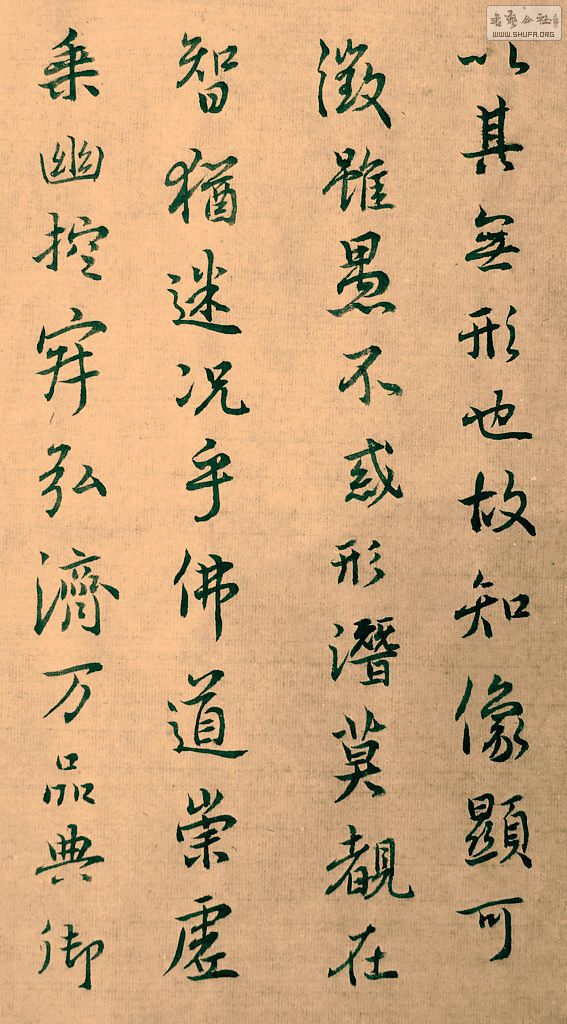 以其無形也故知像顯可
徵雖愚不惑形潛莫覩在
智猶迷況乎佛道崇虛
乘幽控寂弘濟万品典御
WWW.SHUFA.ORG